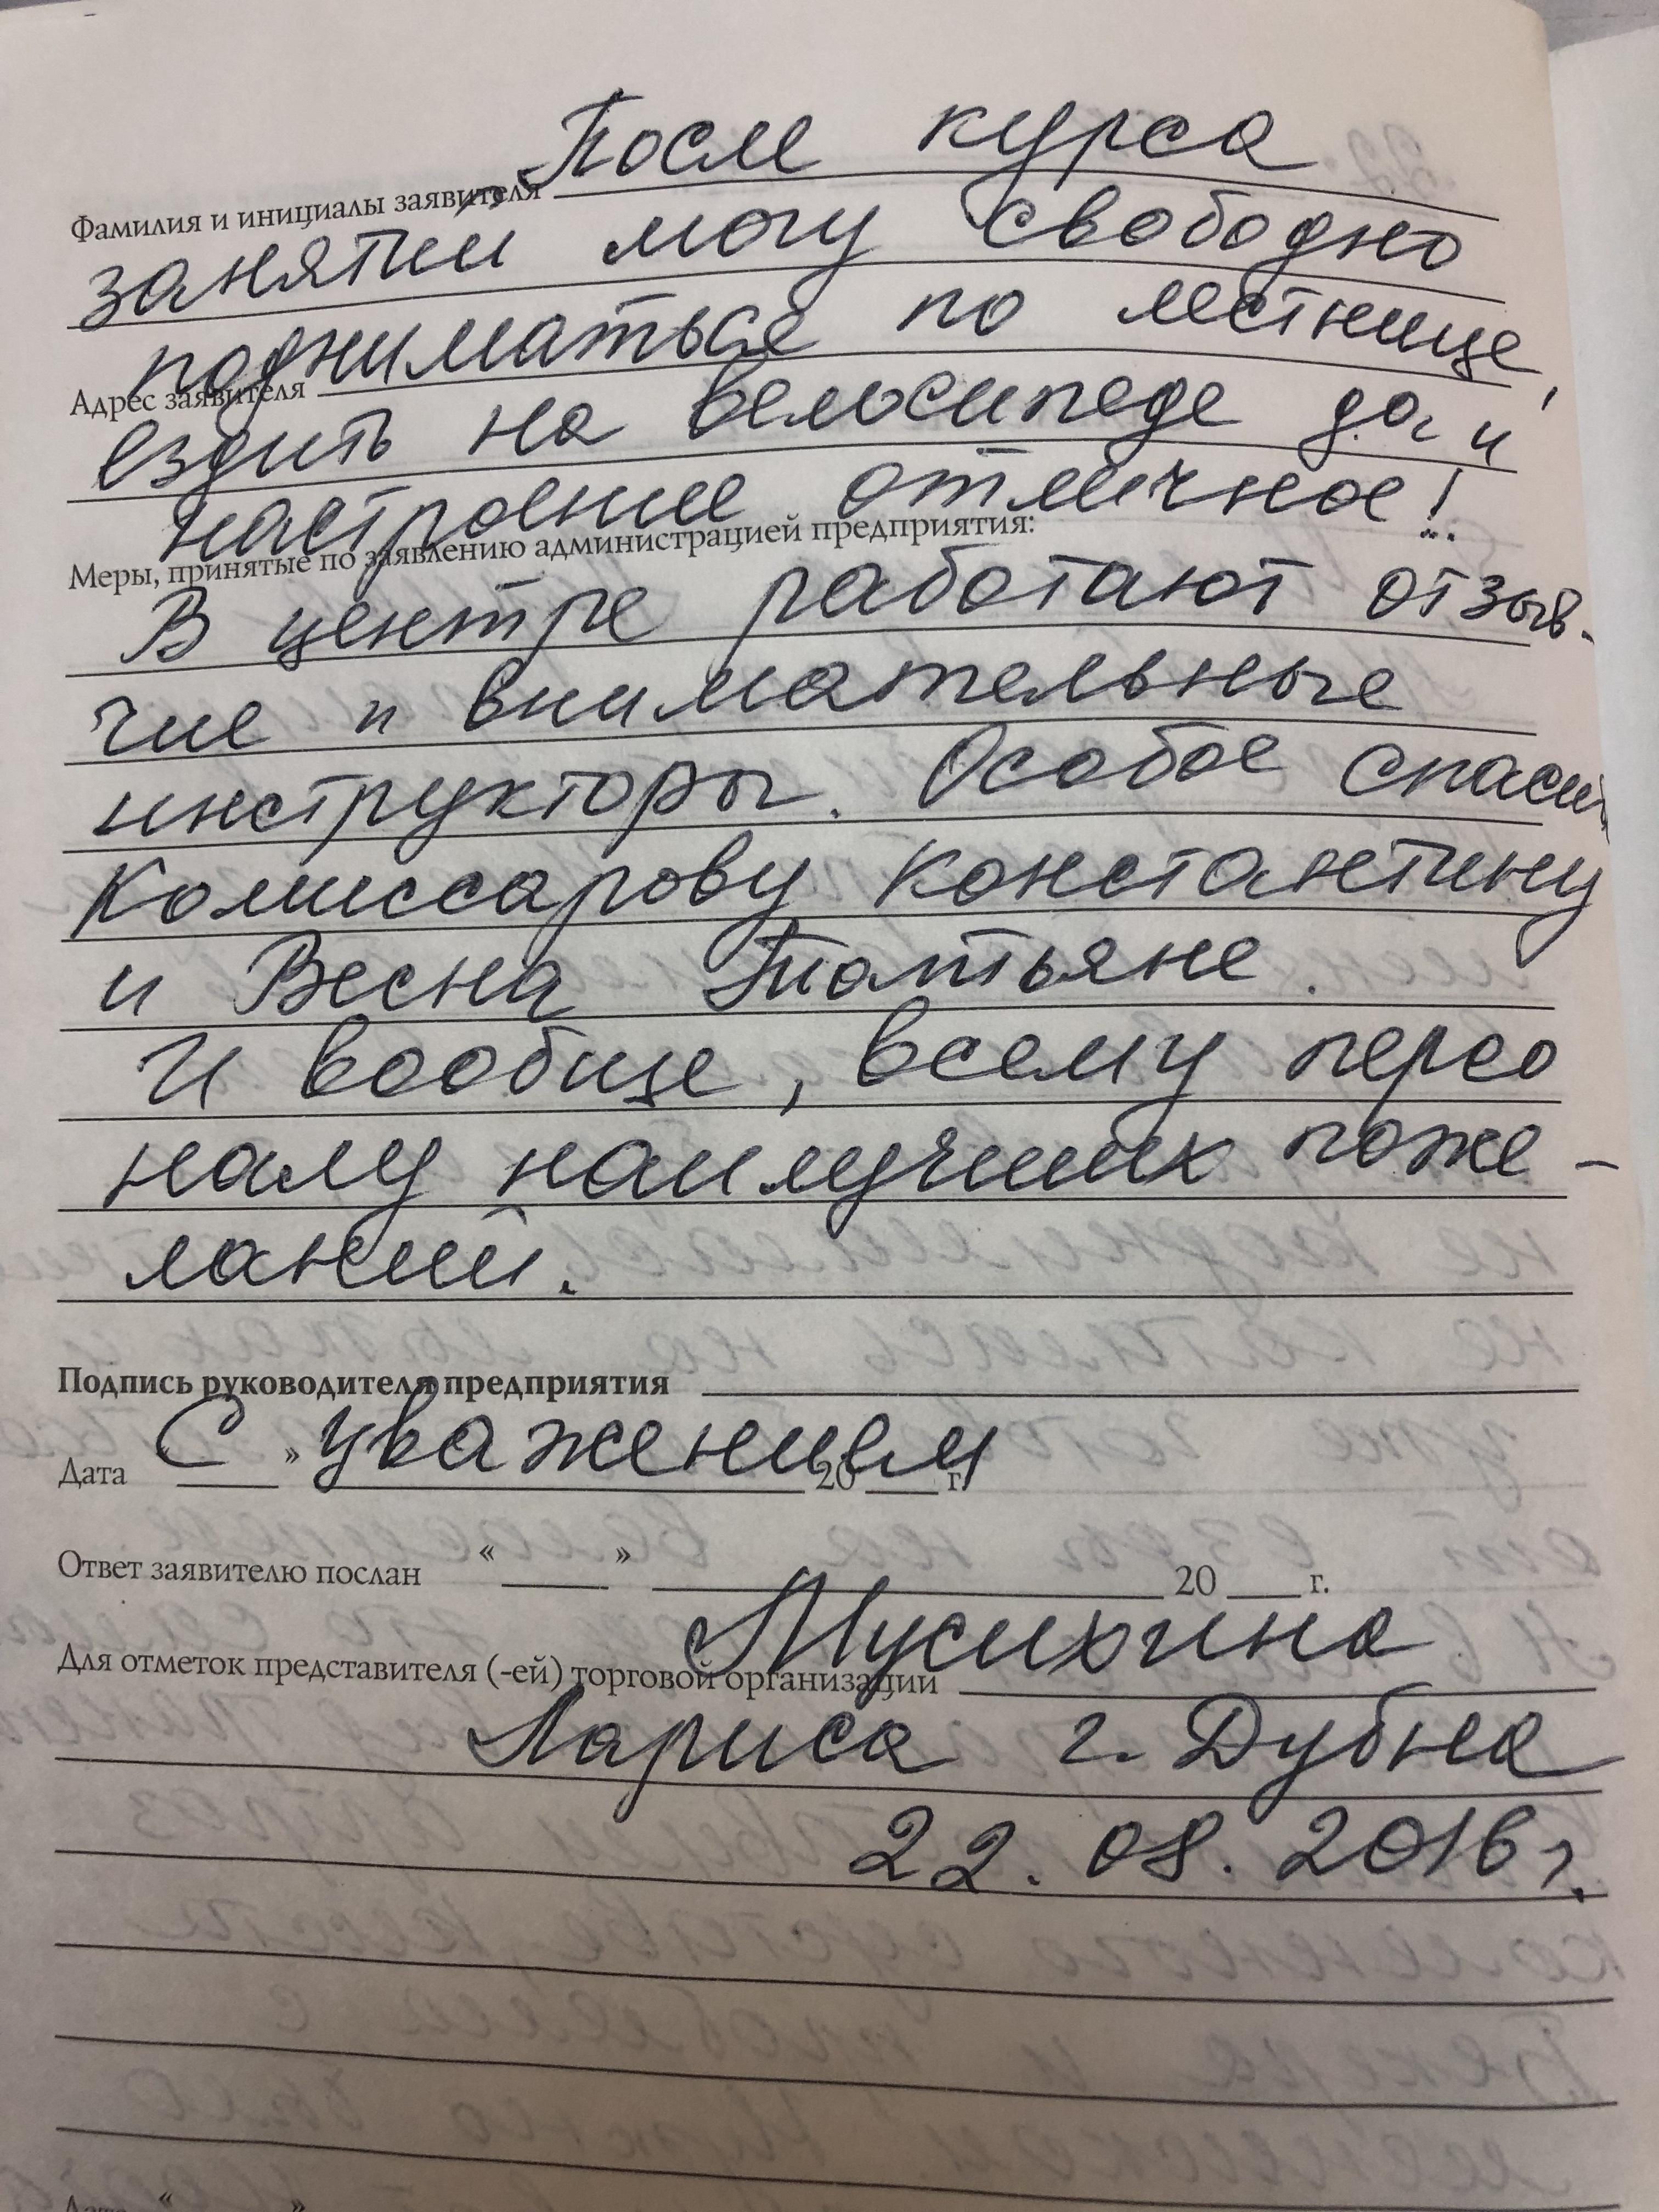 После курса
Фамилия и инициалы заявителя
занятий могу свободно
подниматься по лестнице,
Адрес заявителя
ездить на велосипеде да и
настроение отличное!
Меры, принятые по заявлению администрацией предприятия:
В центре работают отзыв-
чие и внимательные
инструкторы. Особое спаси
Комиссарову Константину
и Весна Татьяне.
И вообще, всему персо
налу наилучших поже-
ланий.
Подпись руководителя предприятия
С уважением
Дата « » 20 г.
Ответ заявителю послан « » 20 г.
Мусихина
Для отметок представителя (-ей) торговой организации
Лариса г. Дубна
22.08.2016 г.